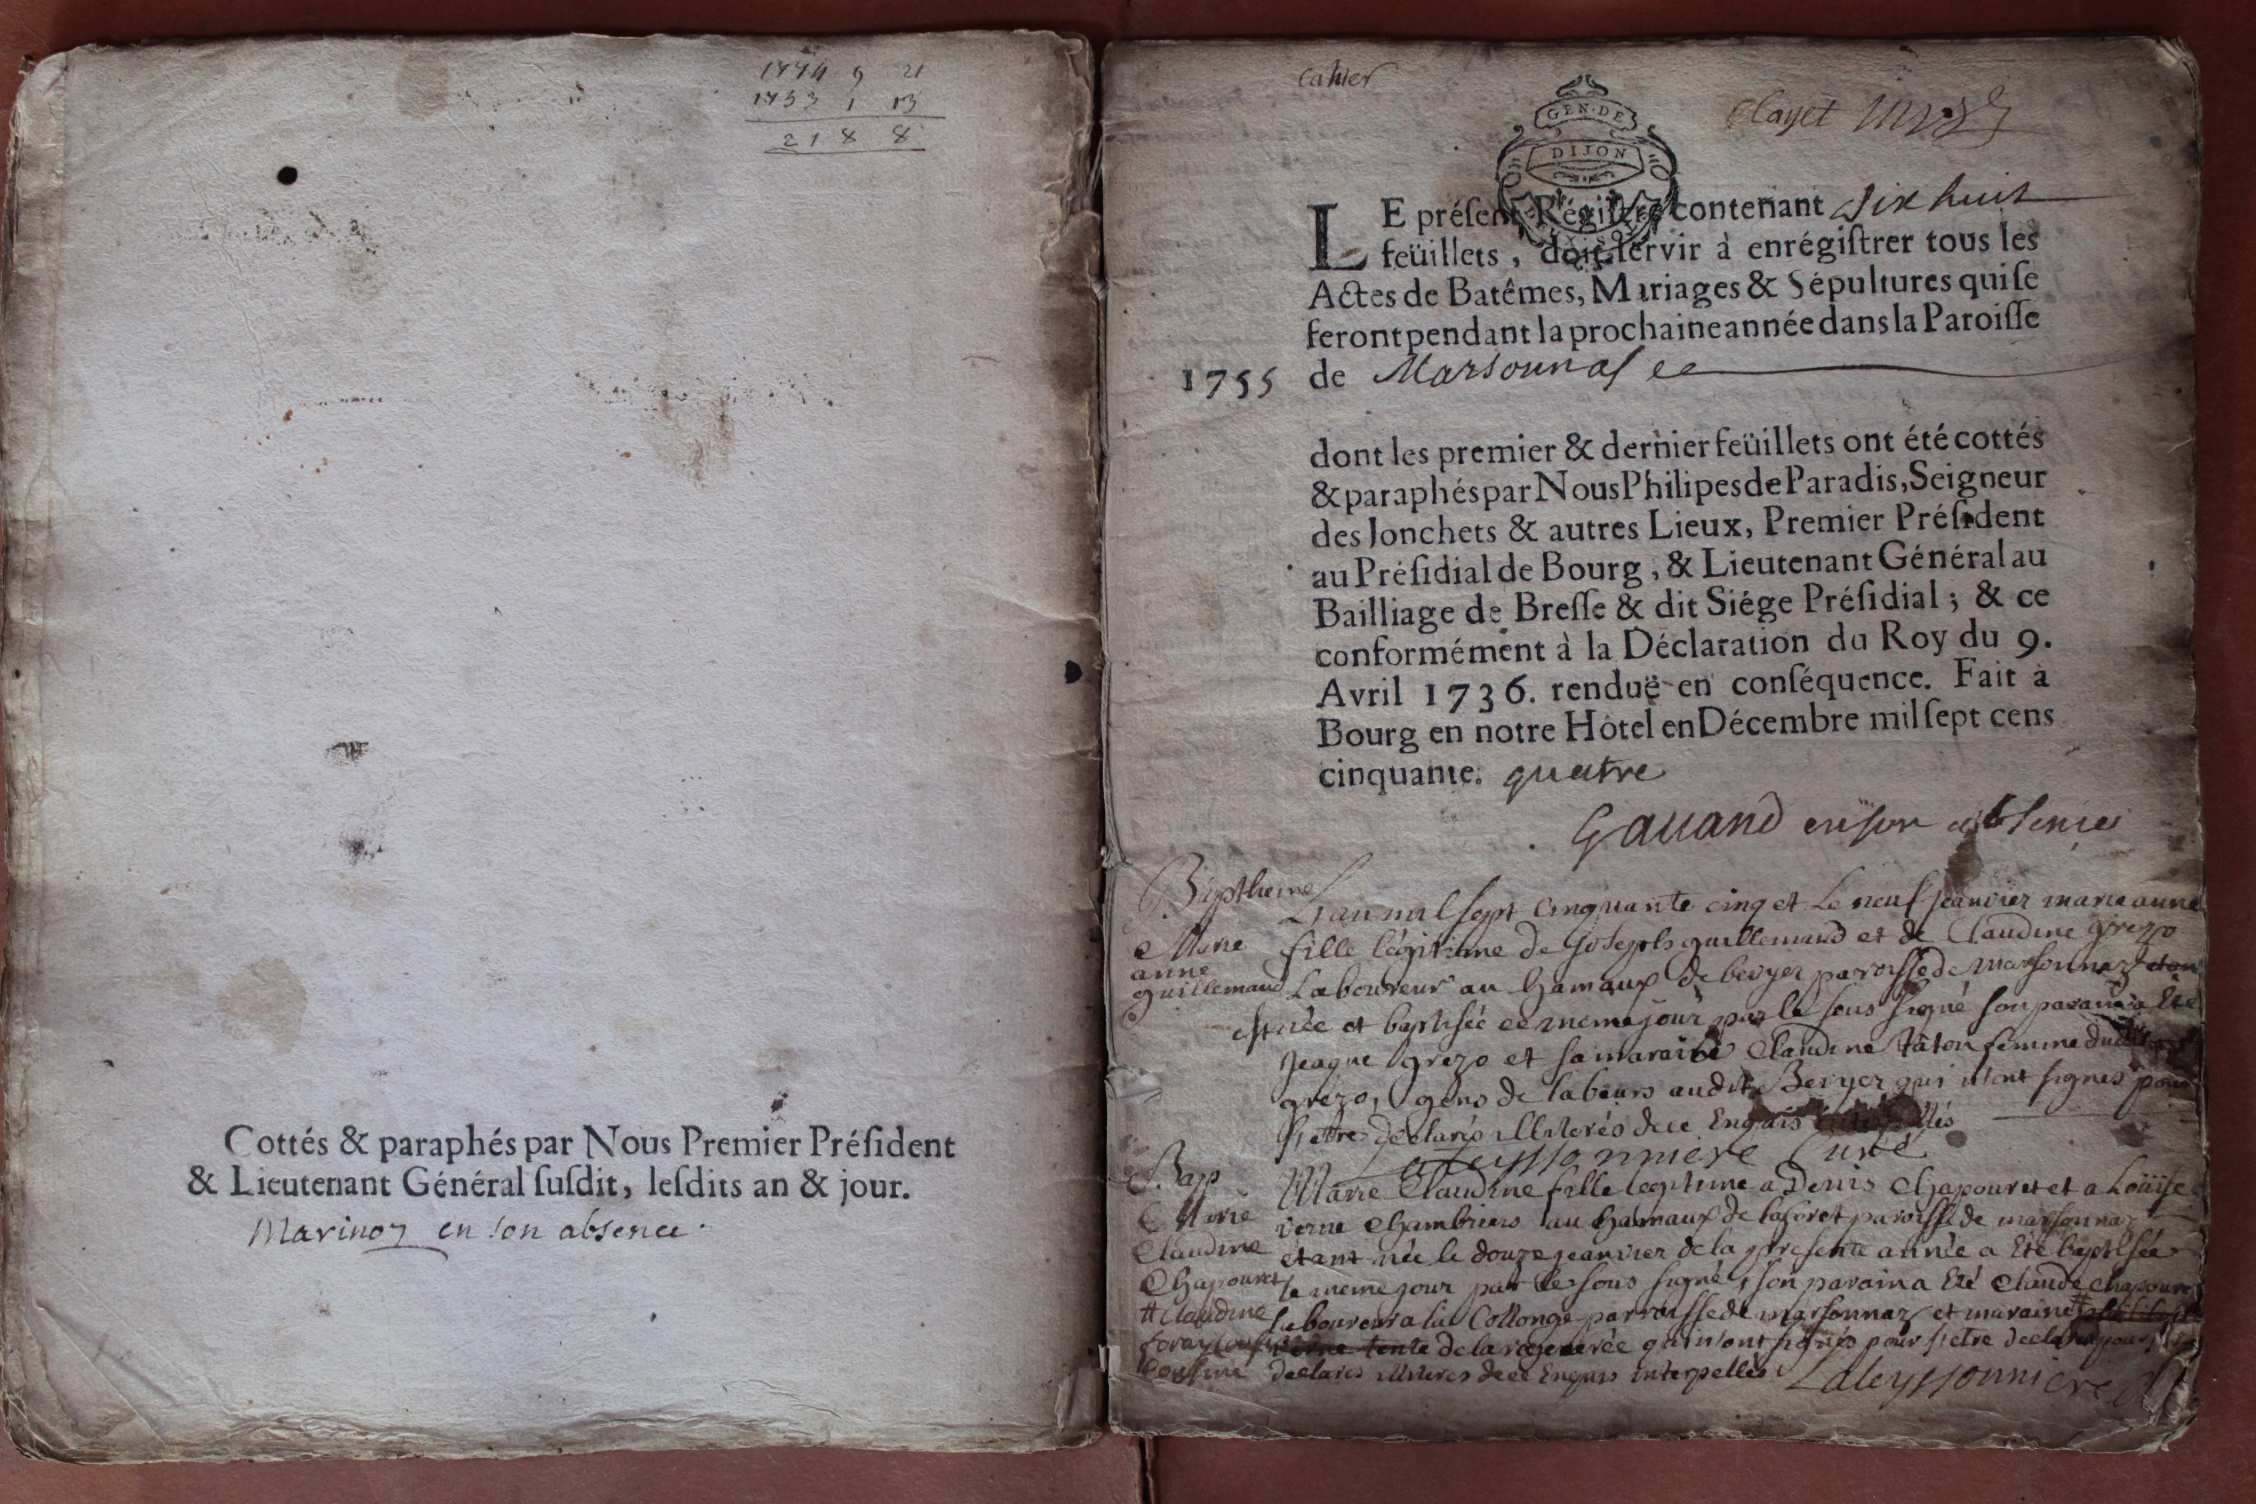 1774 9 21
1753 1 13
21 8 8
Cottés & paraphés par Nous Premier Préſident
& Lieutenant Général ſuſdit, leſdits an & jour.
en son absence.
cahier
GEN. DE
DIJON
LE préſent Régiſtre contenant dix huit
feüillets, doit ſervir à enrégiſtrer tous les
Actes de Batêmes, Mariages & Sépultures qui ſe
feront pendant la prochaine année dans la Paroiſſe
1755 de Marsonnas
dont les premier & dernier feüillets ont été cottés
& paraphés par Nous Philipes de Paradis, Seigneur
des Jonchets & autres Lieux, Premier Préſident
au Préſidial de Bourg, & Lieutenant Général au
Bailliage de Breſſe & dit Siége Préſidial; & ce
conformément à la Déclaration du Roy du 9.
Avril 1736. renduë en conſéquence. Fait à
Bourg en notre Hôtel en Décembre mil ſept cens
cinquante. quatre
Gauand en son absence
Baptheme
Marie
anne
guillemaud
L'an mil sept cinquante cinq et le neuf jeanvier marie anne
fille légitime de Joseph guillemaud et de Claudine grezo
Laboureur au hamaux de bevyer paroisse de marsonnaz
est née et baptisée ce meme jour par le sous signé son parain a Eté
Jeaque grezo et sa maraine Claudine tâton femme dudit
grezo, gens de labeurs audit Bevyer qui n'ont signés pour
s'ettre déclarés illiterés de ce Enquis
Lateyssonniere Curé
Bap
Marie
Claudine
Chapouret
# Claudine
Marie Claudine fille legitime a Denis Chapouret et a Loüise
verne au hamaux de laforet paroisse de marsonnaz
etant née le douze jeanvier de la presente année a Eté baptisée
le meme jour par le sous signé, son parain a Eté Claude chapouret
laboureur a la Collonge parroisse de marsonnaz et maraine #
tente de la qui n'ont signés pour s'etre
declarés illiteres de ce Enquis interpellés Lateyssonniere